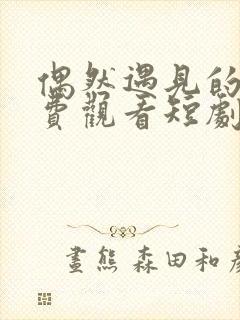 偶然遇見的
費觀看短劇
畫熊 森田和彥